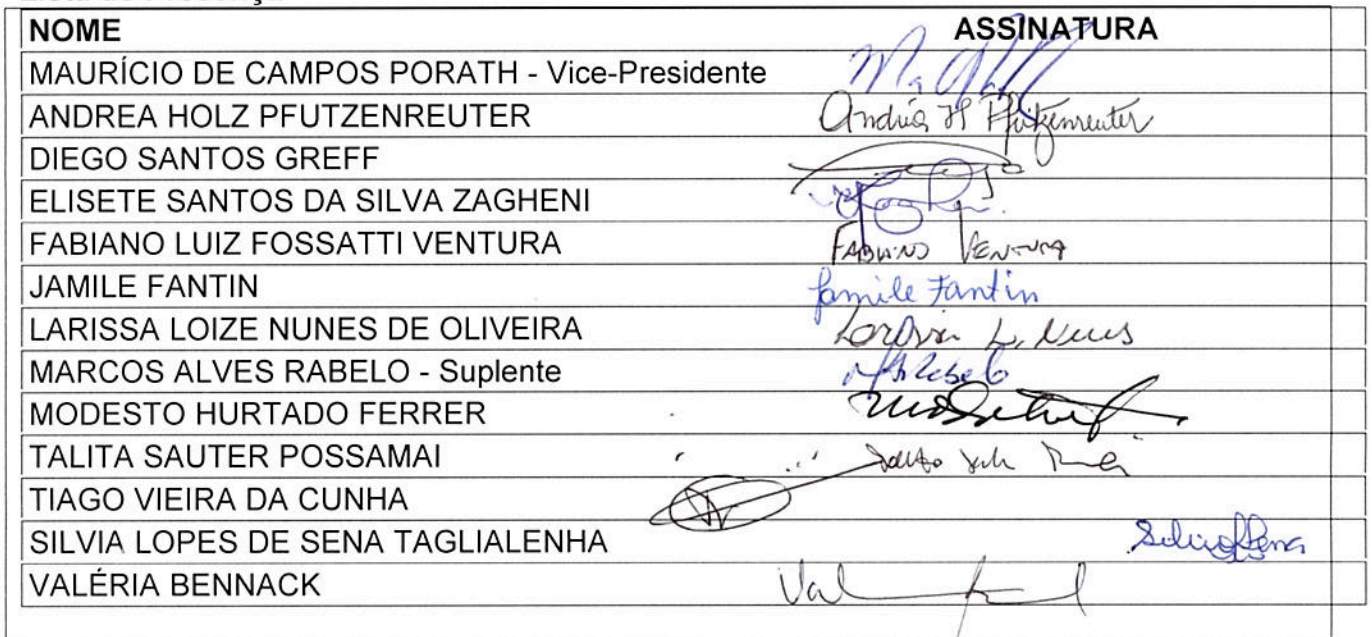 NOME ASSINATURA
MAURÍCIO DE CAMPOS PORATH - Vice-Presidente
ANDREA HOLZ PFUTZENREUTER Andréa H Pfutzenreuter
DIEGO SANTOS GREFF
ELISETE SANTOS DA SILVA ZAGHENI
FABIANO LUIZ FOSSATTI VENTURA FABIANO VENTURA
JAMILE FANTIN Jamile Fantin
LARISSA LOIZE NUNES DE OLIVEIRA Larissa L. Nunes
MARCOS ALVES RABELO - Suplente
MODESTO HURTADO FERRER
TALITA SAUTER POSSAMAI
TIAGO VIEIRA DA CUNHA
SILVIA LOPES DE SENA TAGLIALENHA
VALÉRIA BENNACK